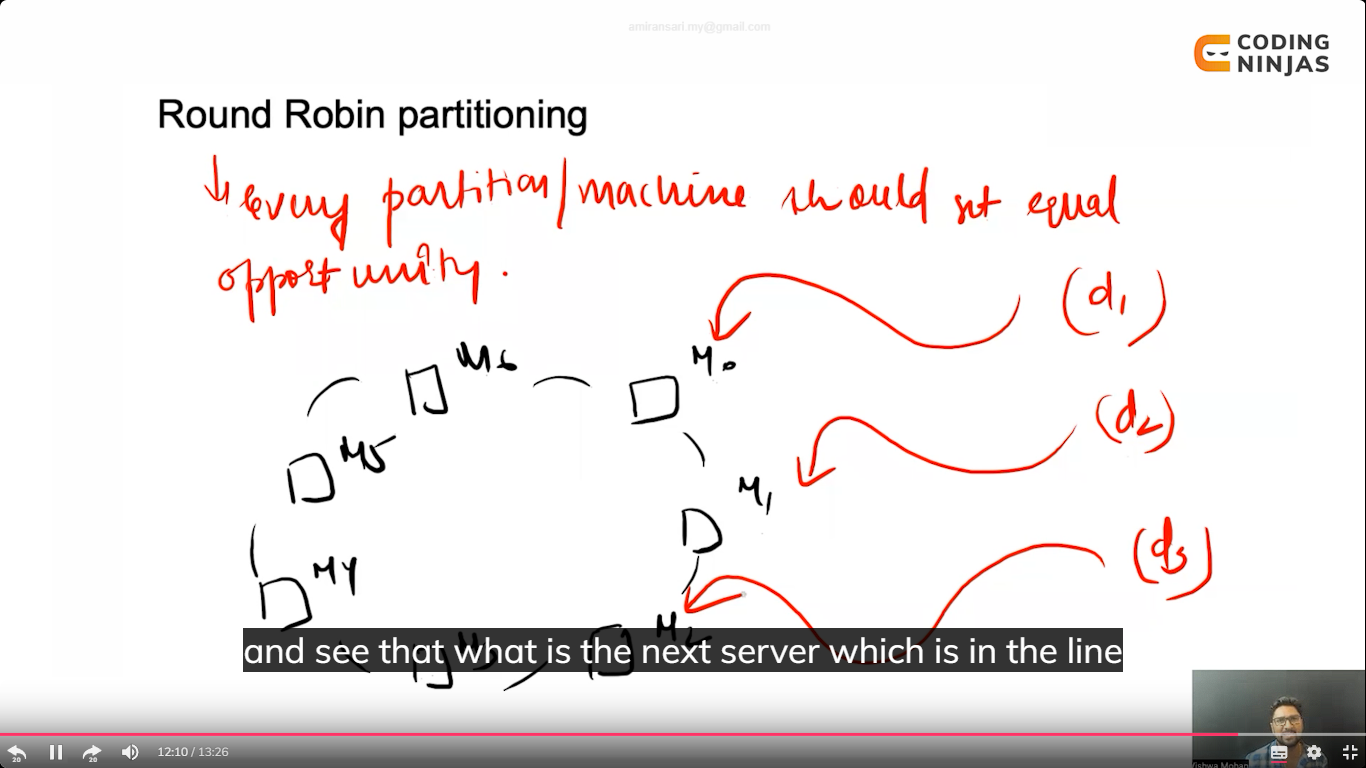 amiransari.my@gmail.com
CODING
NINJAS
Round Robin partitioning
every partition/machine should get equal
opportunity.
(d1)
M6
M0
(d2)
M5
M1
(d3)
M4
M2
M3
and see that what is the next server which is in the line
20
20
12:10 / 13:26
Vishwa Mohan